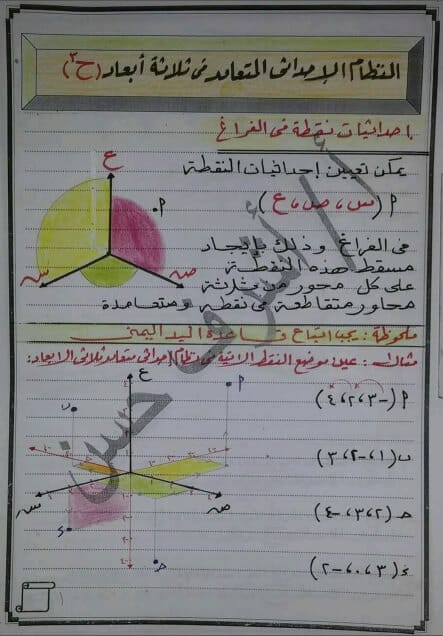 النظام الإحداثى المتعامد فى ثلاثة أبعاد (ح٣)
إحداثيات نقطة فى الفراغ
يمكن تعيين إحداثيات النقطة
م (س ، ص ، ع)
فى الفراغ وذلك بإيجاد
مسقط هذه النقطة
على كل محور من ثلاثة
محاور متقاطعة فى نقطة ومتعامدة
ع
م
س
ص
ملحوظة : يجب اتباع قاعدة اليد اليمنى
مثال١ : عين موضع النقط الآتية فى نظام إحداثى متعامد ثلاثى الأبعاد :
م (-٣ ، ٢ ، ٤)
ب (١ ، -٢ ، ٣)
حـ (٢ ، ٣ ، -٤)
ء (٣ ، ٠ ، -٢)
ع
م
ب
س
ص
ء
حـ
أ / أشرف حسن
١